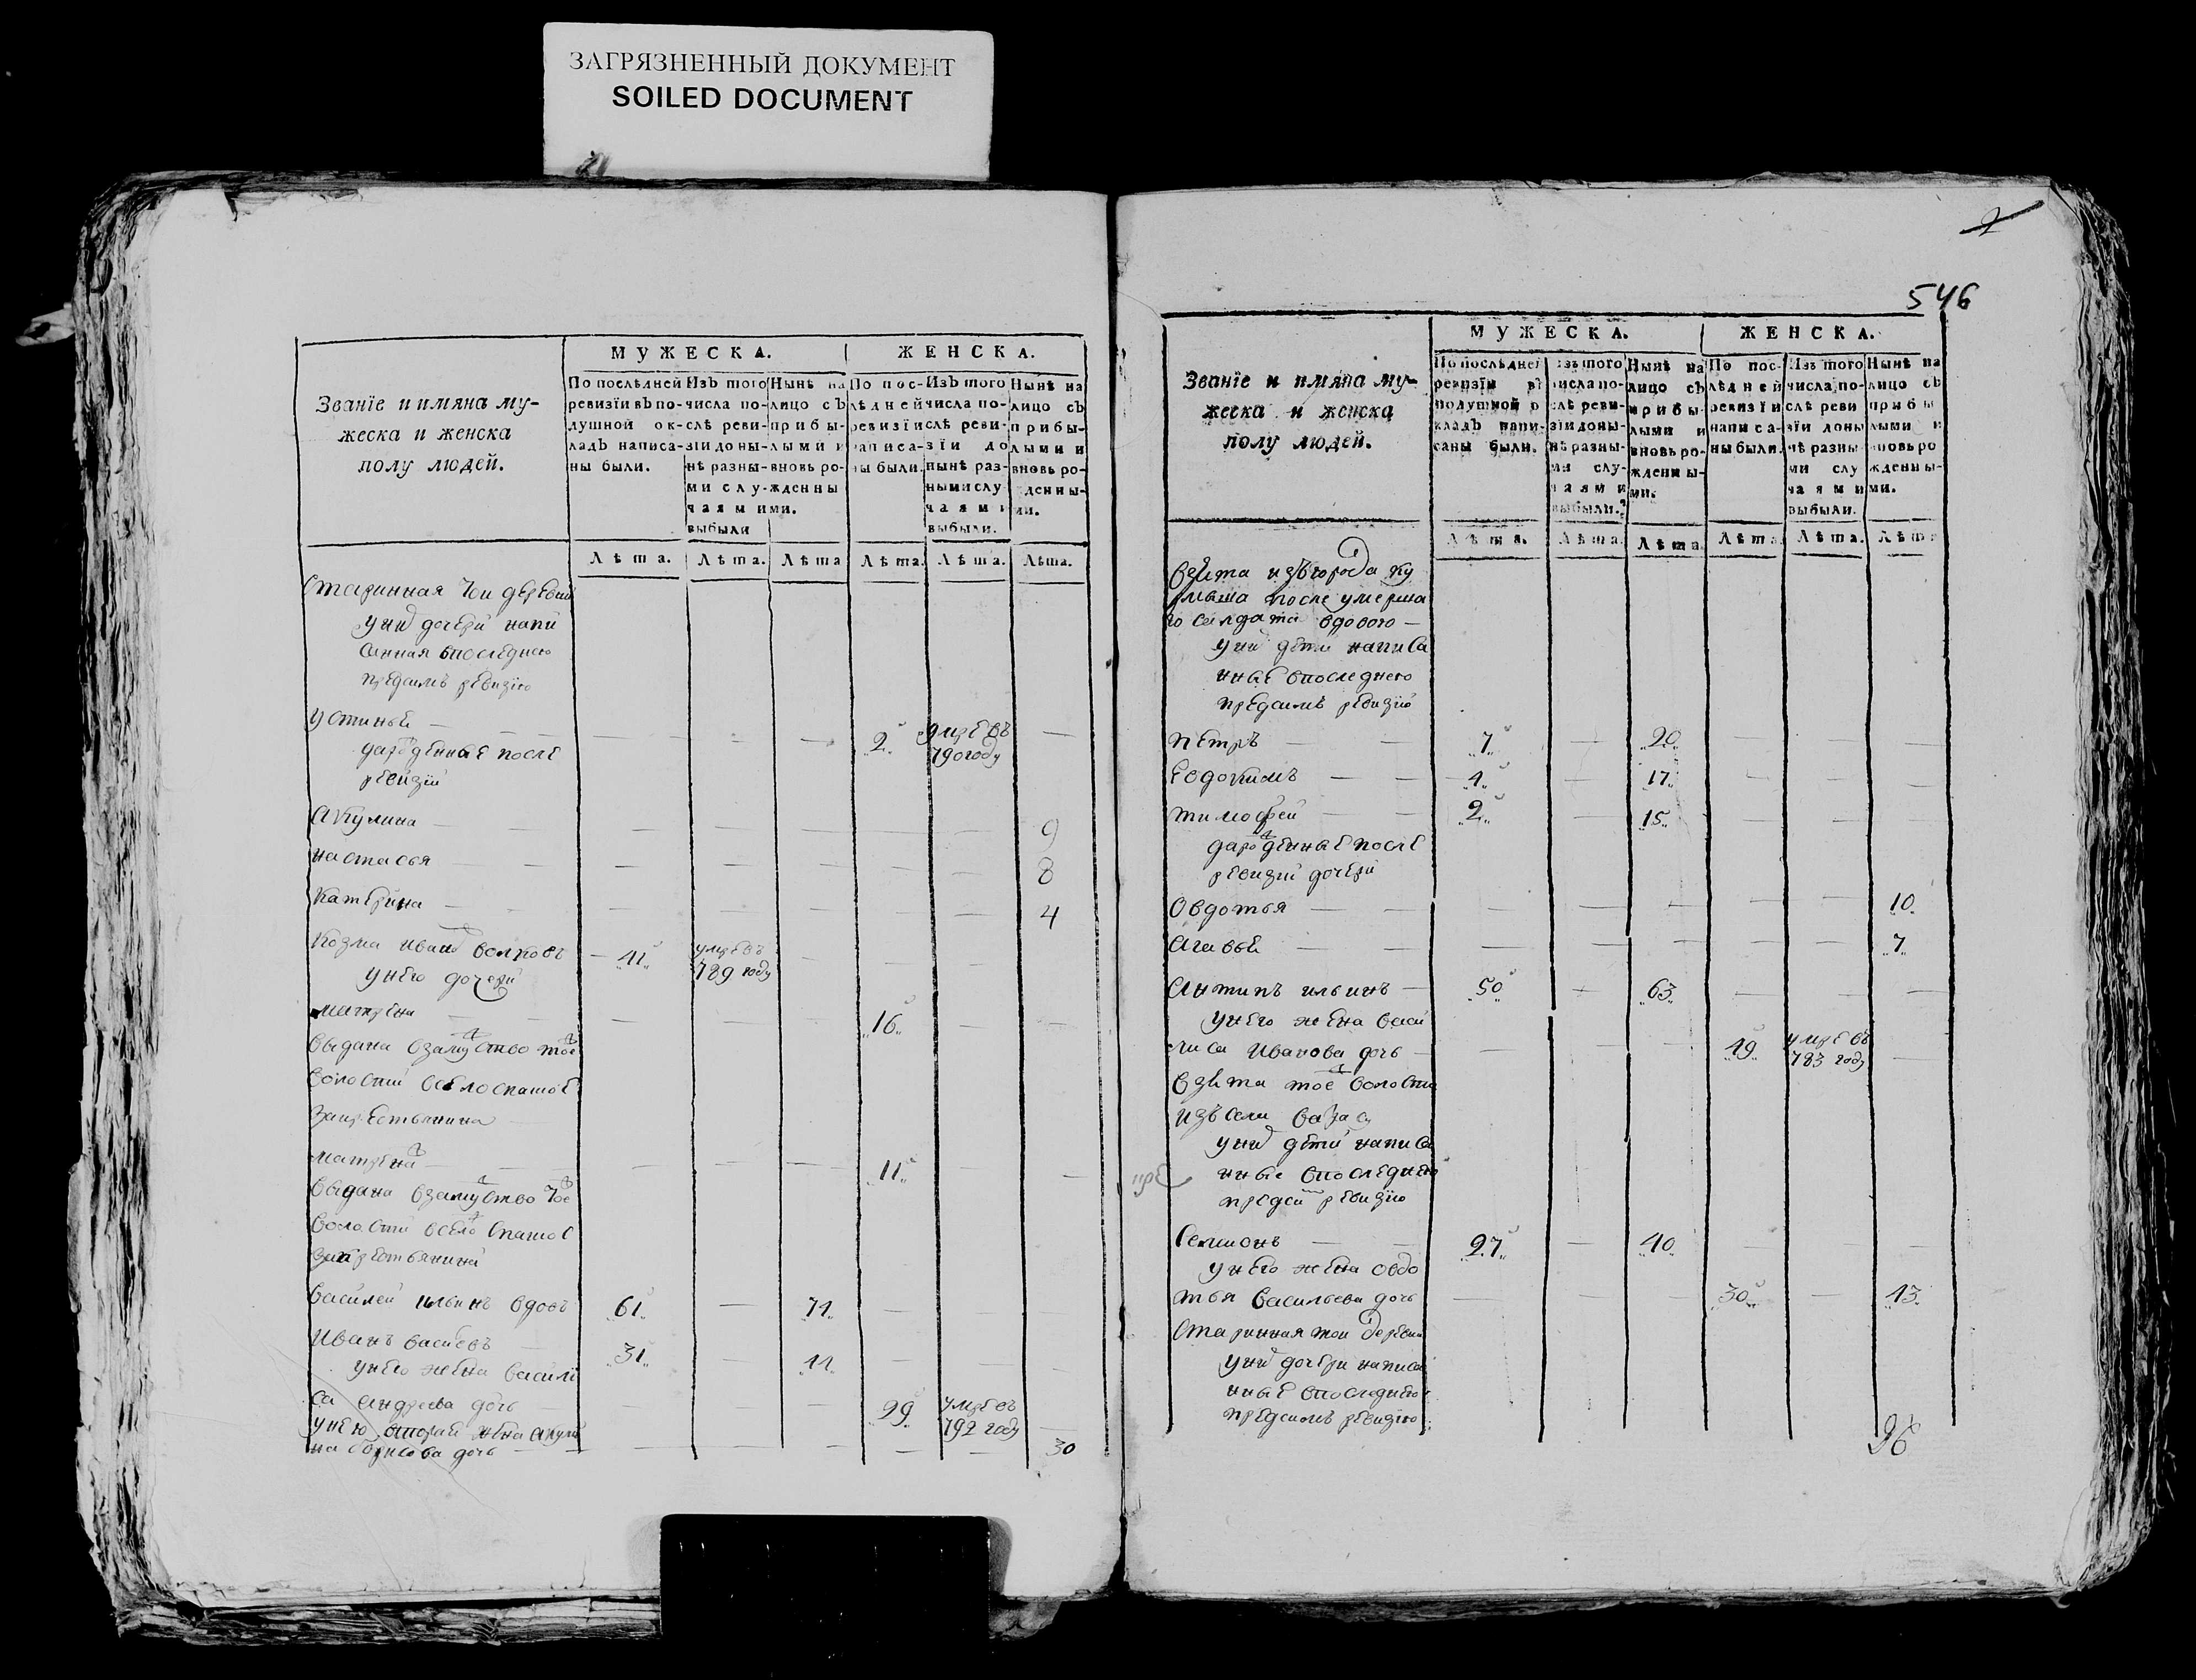 ЗАГРЯЗНЕННЫЙ ДОКУМЕНТ
SOILED DOCUMENT
Званїе и имяна му-
жеска и женска
полу людей.
МУЖЕСКА.
ЖЕНСКА.
По послѣдней ревизїи въ подушной окладъ написаны были.
Изъ того числа послѣ ревизїи донынѣ разными случаями выбыли
Нынѣ на лицо съ прибылыми и вновь рожденными.
По послѣдней ревизїи написаны были.
Изъ того числа послѣ ревизїи донынѣ разными случаями выбыли.
Нынѣ на лицо съ прибылыми и вновь рожденными.
Лѣта. Лѣта. Лѣта Лѣта. Лѣта. Лѣта.
Старинная той деревни
у них дочери напи
санная впоследнею
предсимъ ревизїю
Устинье — 2 умре въ 790 году —
дарожденные после
ревизїи
Акулина — 9
настасья — 8
катерина — 4
козма иванов волковъ — 41 умре въ 789 году
у него дочери
матрена — 16
выдана взамуство тое
волости
закрестьянина
матрена — 11
выдана взамуство тое
волости
закрестьянина
василей ильинъ вдовъ 61 — 74
Иванъ васильевъ 31 — 44
у него жена васили
са андреева дочь — 29 умре въ 792 году
у нево вторая жена акули
на борисова дочь — 30
546
Званїе и имяна му-
жеска и женска
полу людей.
МУЖЕСКА.
ЖЕНСКА.
По послѣдней ревизїи въ подушной окладъ написаны были.
Изъ того числа послѣ ревизїи донынѣ разными случаями выбыли.
Нынѣ на лицо съ прибылыми и вновь рожденными.
По послѣдней ревизїи написаны были.
Изъ того числа послѣ ревизїи донынѣ разными случаями выбыли.
Нынѣ на лицо съ прибылыми и вновь рожденными.
Лѣта. Лѣта. Лѣта. Лѣта. Лѣта. Лѣта
взята изъ города ку
рмыша после умерша
го салдата вдовою —
у них дети написа
нные впоследнею
предсимъ ревизїю
петръ — 7 — 20
Евдокимъ — 4 — 17
тимофей — 2 — 15
дарожденные после
ревизїи дочери
Овдотья — 10
агавья — 7
Антипъ ильинъ — 50 — 63
у него жена васи
лиса Иванова дочь — 49 умре въ 783 году —
взята тое волости
изъ села
у них дети написа
нные впоследнею
предсим ревизїю
Семионъ — 27 — 40
у него жена овдо
тья васильева дочь — 30 — 43
Старинная той деревни
у них дочери написа
нные впоследнею
предсимъ ревизїю
26